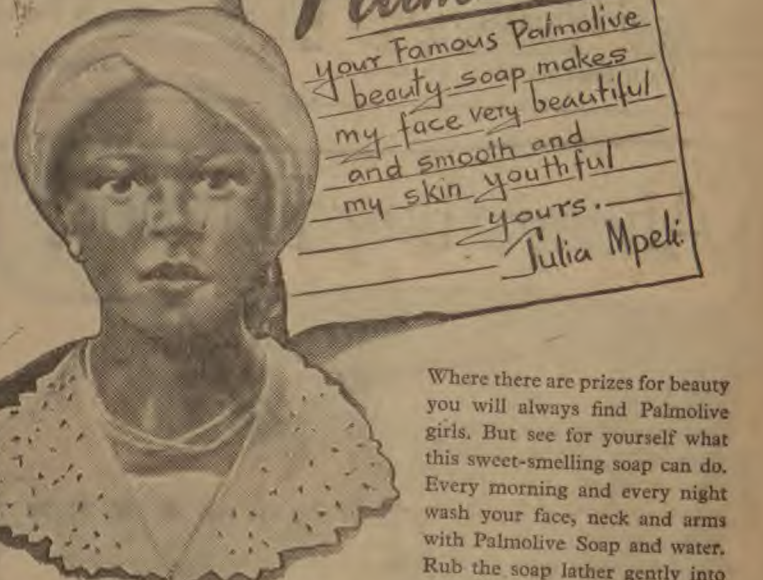 your Famous Palmolive
beauty soap makes
my face very beautiful
and smooth and
my skin youthful
yours.
Julia Mpeli.
Where there are prizes for beauty
you will always find Palmolive
girls. But see for yourself what
this sweet-smelling soap can do.
Every morning and every night
wash your face, neck and arms
with Palmolive Soap and water.
Rub the soap lather gently into